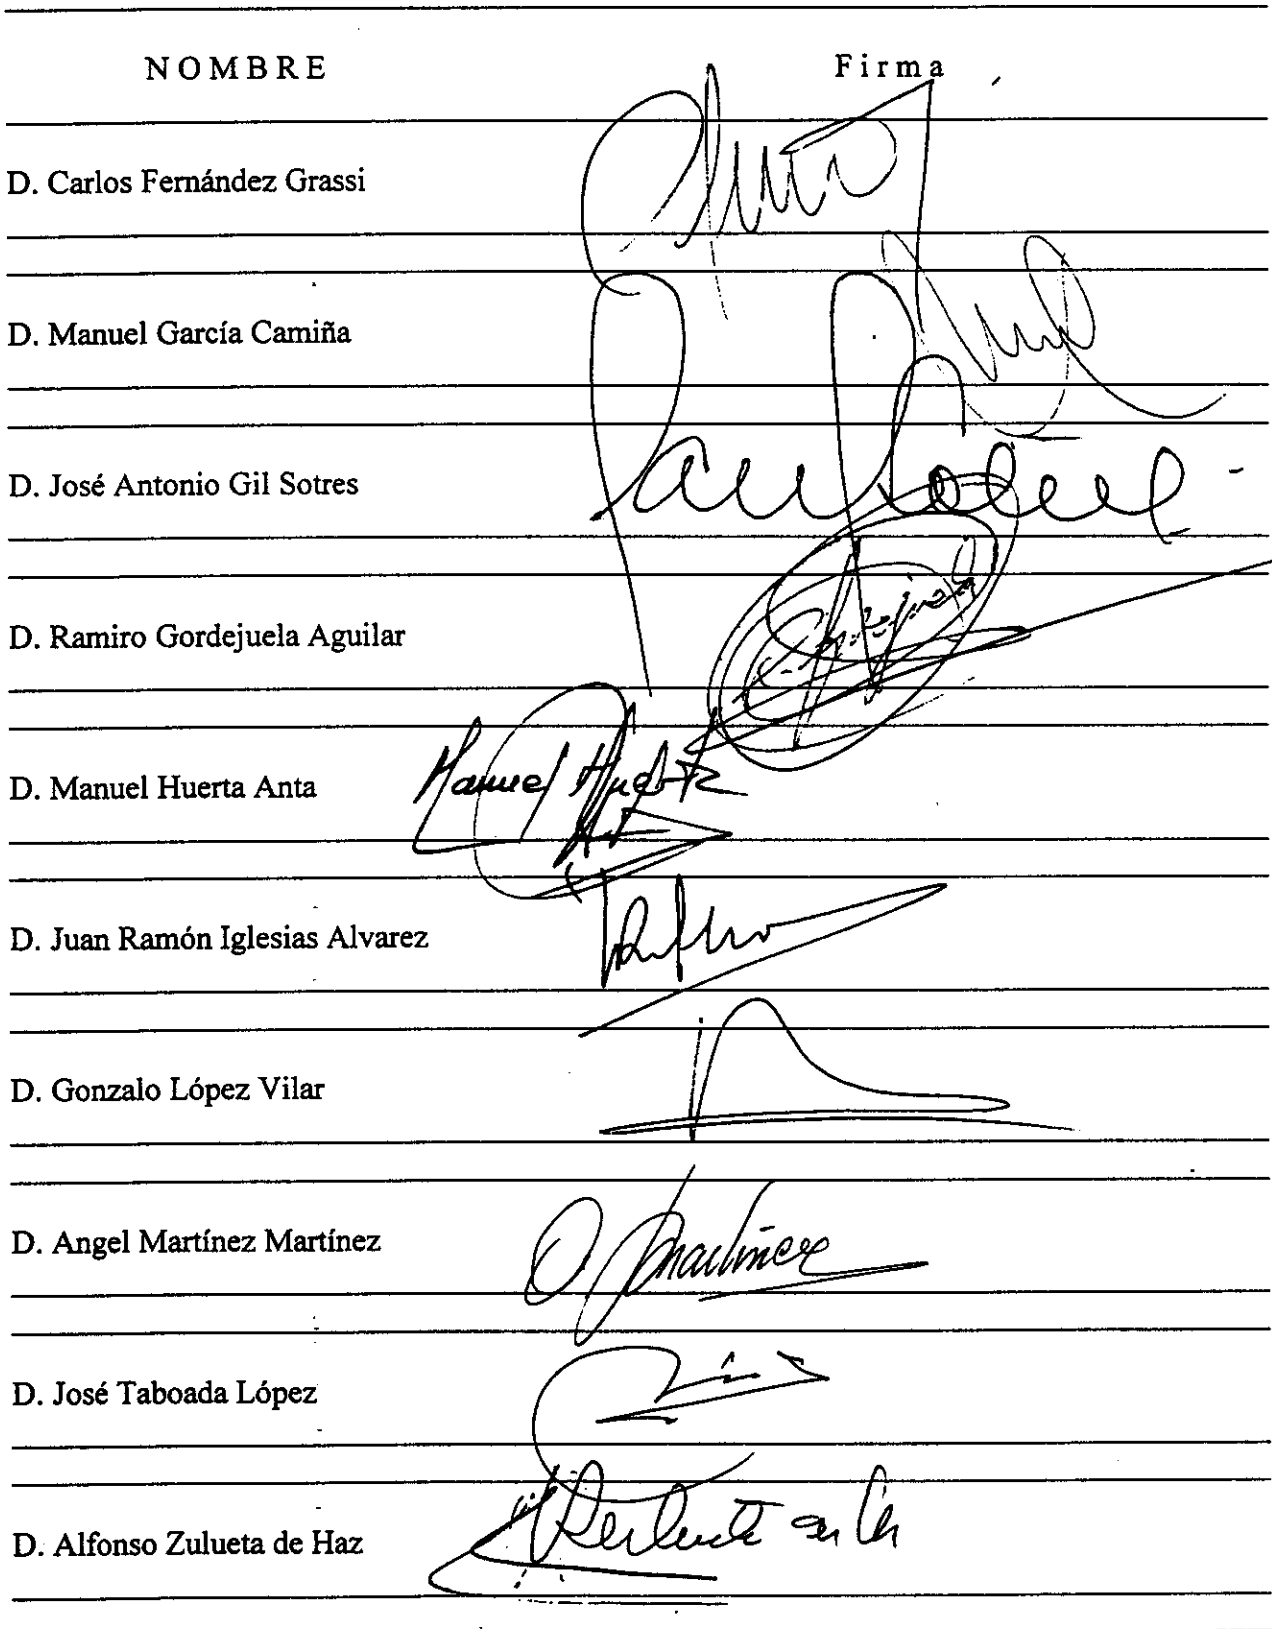 NOMBRE Firma
D. Carlos Fernández Grassi
D. Manuel García Camiña
D. José Antonio Gil Sotres
D. Ramiro Gordejuela Aguilar
D. Manuel Huerta Anta Manuel Huerta
D. Juan Ramón Iglesias Alvarez
D. Gonzalo López Vilar
D. Angel Martínez Martínez Martínez
D. José Taboada López
D. Alfonso Zulueta de Haz